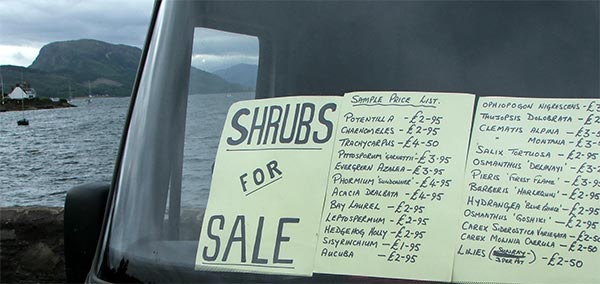 SHRUBS
FOR
SALE
SAMPLE PRICE LIST.
POTENTILLA -£2-95
CHAENOMELES -£2-95
TRACHYCARPUS -£4-50
PITTOSPORUM 'GARNETTII' -£3-95
EVERGREEN AZALEA -£3-95
PHORMIUM 'SUNDOWNER' -£4-95
ACACIA DEALBATA -£4-95
BAY LAUREL -£2-95
LEPTOSPERMUM -£2-95
HEDGEHOG HOLLY -£2-95
SISYRINCHIUM -£1-95
AUCUBA -£2-95
OPHIOPOGON NIGRESCENS -£
THUJOPSIS DOLOBRATA -£2
CLEMATIS ALPINA -£3
" MONTANA -£3-9
SALIX TORTUOSA -£2-95
OSMANTHUS 'DELAVAYI' -£2-95
PIERIS 'FOREST FLAME' -£3-95
BERBERIS 'HARLEQUIN' -£2-
HYDRANGEA -£2-
OSMANTHUS 'GOSHIKI' -£2-95
CAREX SIDEROSTICA VARIEGATA -£2-50
CAREX MOLINIA CAERULA -£2-50
LILIES ( PER POT) -£2-50